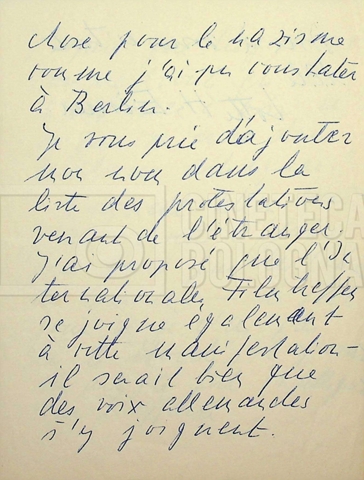 chose pour le nazisme
comme j'ai pu constater
à Berlin.
Je vous prie d'ajouter
mon nom dans la
liste des protestations
venant de l'étranger.
J'ai proposé que l'In
ternationale Filmtreffen
se joigne également
à cette manifestation -
il serait bien que
des voix allemandes
s'y joignent.
CINETECA
BOLOGNA